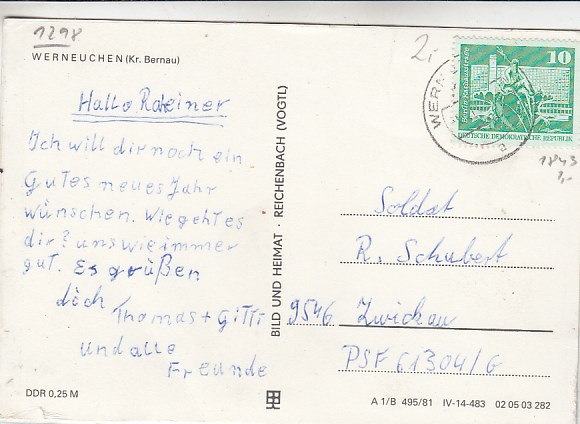 1298
WERNEUCHEN (Kr. Bernau)
Hallo Rainer
Ich will dir noch ein
gutes neues Jahr
wünschen. Wie geht es
dir? uns wie immer
gut. Es grüßen
dich
Thomas + Gitti
und alle
Freunde
DDR 0,25 M
BILD UND HEIMAT · REICHENBACH (VOGTL)
2,-
WERN
10
Berlin, Rathausstrasse
DEUTSCHE DEMOKRATISCHE REPUBLIK
1843
2,-
Soldat
R. Schubert
9546 Zwickau
PSF 61304/G
A 1/B 495/81 IV-14-483 02 05 03 282